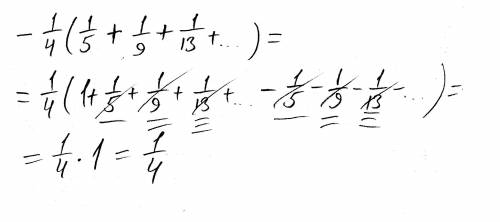 - 1/4 ( 1/5 + 1/9 + 1/13 + ... ) =
= 1/4 ( 1 + 1/5 + 1/9 + 1/13 + ... - 1/5 - 1/9 - 1/13 - ... ) =
= 1/4 · 1 = 1/4